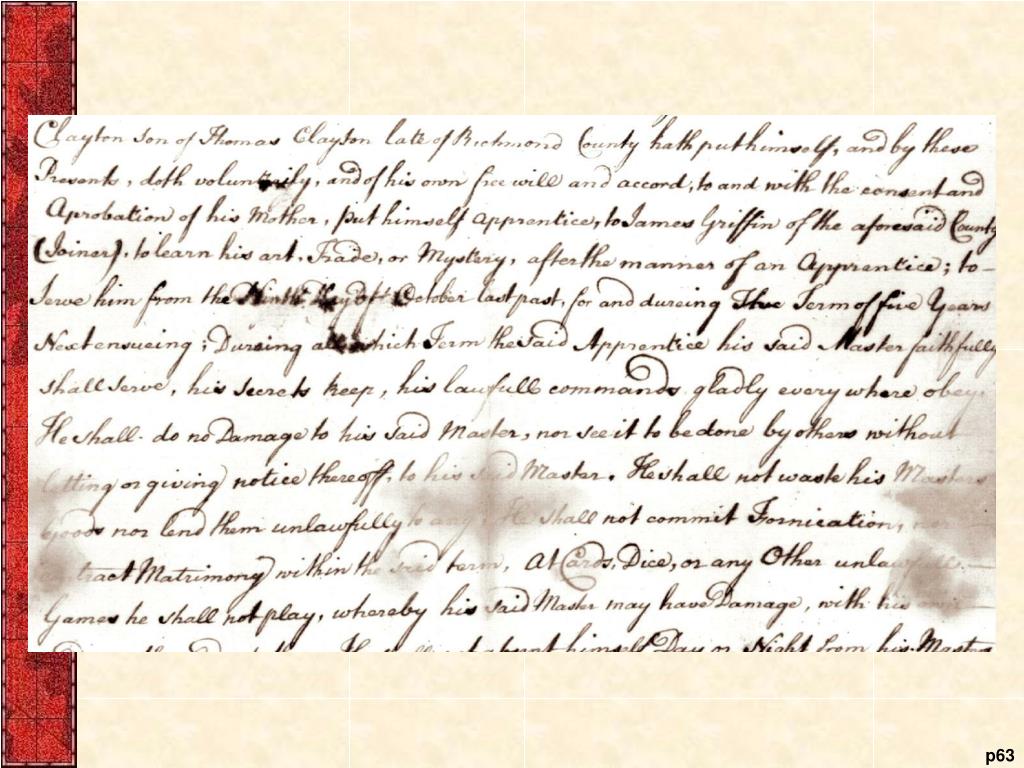 Clayton son of Thomas Clayton late of Richmond County hath put himself, and by these
Presents, doth voluntarily, and of his own free will and accord, to and with the consent and
Aprobation of his Mother, put himself apprentice, to James Griffin of the aforesaid County
(Joiner), to learn his art, Trade, or Mystery, after the manner of an Apprentice; to
Serve him from the Ninth Day of October last past, for and dureing Thee Term of five Years
Next ensueing; Dureing all which Term the Said Apprentice his said Master faithfully
shall serve, his secrets keep, his lawfull commands gladly every where obey.
He shall do no Damage to his said Master, nor see it to be done by others without
letting or giving notice thereoff, to his said Master. He shall not waste his Masters
goods nor lend them unlawfully to any. He shall not commit Fornication, nor
contract Matrimony within the said term, At Cards, Dice, or any Other unlawfull
Games he shall not play, whereby his said Master may have Damage, with his own
absent himself Day or Night from his Masters
p63